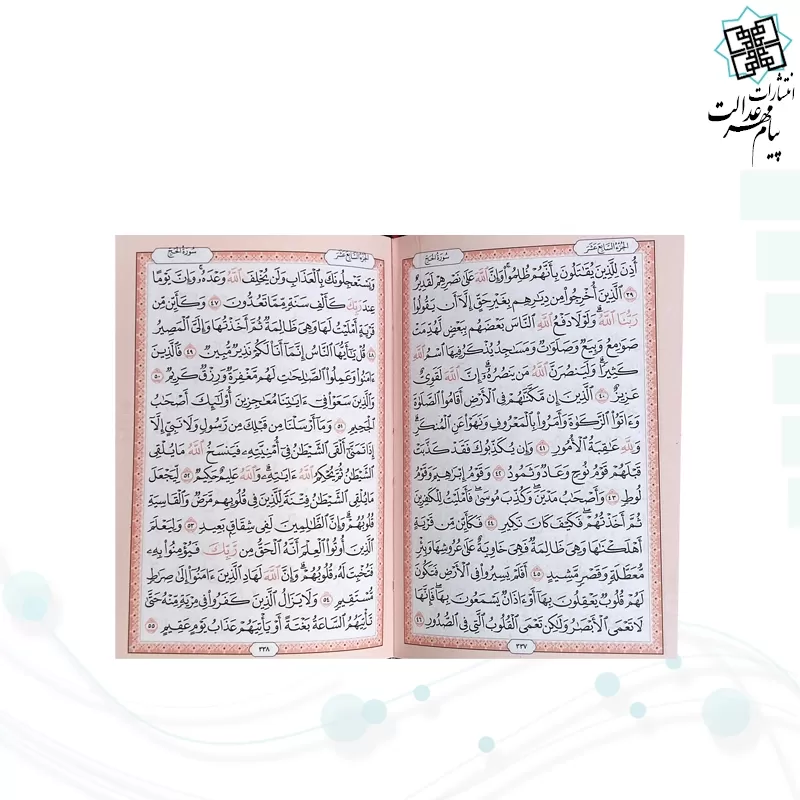 انتشارات
پیام مهر عدالت
الجزء السابع عشر
سورة الحج
أُذِنَ لِلَّذِينَ يُقَاتَلُونَ بِأَنَّهُمْ ظُلِمُوا وَإِنَّ اللَّهَ عَلَىٰ نَصْرِهِمْ لَقَدِيرٌ
٣٩ الَّذِينَ أُخْرِجُوا مِن دِيَارِهِم بِغَيْرِ حَقٍّ إِلَّا أَن يَقُولُوا
رَبُّنَا اللَّهُ وَلَوْلَا دَفْعُ اللَّهِ النَّاسَ بَعْضَهُم بِبَعْضٍ لَهُدِّمَتْ
صَوَامِعُ وَبِيَعٌ وَصَلَوَاتٌ وَمَسَاجِدُ يُذْكَرُ فِيهَا اسْمُ اللَّهِ
كَثِيرًا وَلَيَنصُرَنَّ اللَّهُ مَن يَنصُرُهُ إِنَّ اللَّهَ لَقَوِيٌّ
عَزِيزٌ ٤٠ الَّذِينَ إِن مَّكَّنَّاهُمْ فِي الْأَرْضِ أَقَامُوا الصَّلَاةَ
وَءَاتَوُا الزَّكَاةَ وَأَمَرُوا بِالْمَعْرُوفِ وَنَهَوْا عَنِ الْمُنكَرِ
وَلِلَّهِ عَاقِبَةُ الْأُمُورِ ٤١ وَإِن يُكَذِّبُوكَ فَقَدْ كَذَّبَتْ
قَبْلَهُمْ قَوْمُ نُوحٍ وَعَادٌ وَثَمُودُ ٤٢ وَقَوْمُ إِبْرَاهِيمَ وَقَوْمُ
لُوطٍ ٤٣ وَأَصْحَابُ مَدْيَنَ وَكُذِّبَ مُوسَىٰ فَأَمْلَيْتُ لِلْكَافِرِينَ
ثُمَّ أَخَذْتُهُمْ فَكَيْفَ كَانَ نَكِيرِ ٤٤ فَكَأَيِّن مِّن قَرْيَةٍ
أَهْلَكْنَاهَا وَهِيَ ظَالِمَةٌ فَهِيَ خَاوِيَةٌ عَلَىٰ عُرُوشِهَا وَبِئْرٍ
مُّعَطَّلَةٍ وَقَصْرٍ مَّشِيدٍ ٤٥ أَفَلَمْ يَسِيرُوا فِي الْأَرْضِ فَتَكُونَ
لَهُمْ قُلُوبٌ يَعْقِلُونَ بِهَا أَوْ ءَاذَانٌ يَسْمَعُونَ بِهَا فَإِنَّهَا
لَا تَعْمَى الْأَبْصَارُ وَلَٰكِن تَعْمَى الْقُلُوبُ الَّتِي فِي الصُّدُورِ ٤٦
٣٣٧
الجزء السابع عشر
سورة الحج
وَيَسْتَعْجِلُونَكَ بِالْعَذَابِ وَلَن يُخْلِفَ اللَّهُ وَعْدَهُ وَإِنَّ يَوْمًا
عِندَ رَبِّكَ كَأَلْفِ سَنَةٍ مِّمَّا تَعُدُّونَ ٤٧ وَكَأَيِّن مِّن
قَرْيَةٍ أَمْلَيْتُ لَهَا وَهِيَ ظَالِمَةٌ ثُمَّ أَخَذْتُهَا وَإِلَيَّ الْمَصِيرُ
٤٨ قُلْ يَا أَيُّهَا النَّاسُ إِنَّمَا أَنَا لَكُمْ نَذِيرٌ مُّبِينٌ ٤٩ فَالَّذِينَ
ءَامَنُوا وَعَمِلُوا الصَّالِحَاتِ لَهُم مَّغْفِرَةٌ وَرِزْقٌ كَرِيمٌ ٥٠
وَالَّذِينَ سَعَوْا فِي ءَايَاتِنَا مُعَاجِزِينَ أُولَٰئِكَ أَصْحَابُ
الْجَحِيمِ ٥١ وَمَا أَرْسَلْنَا مِن قَبْلِكَ مِن رَّسُولٍ وَلَا نَبِيٍّ إِلَّا
إِذَا تَمَنَّىٰ أَلْقَى الشَّيْطَانُ فِي أُمْنِيَّتِهِ فَيَنسَخُ اللَّهُ مَا يُلْقِي
الشَّيْطَانُ ثُمَّ يُحْكِمُ اللَّهُ ءَايَاتِهِ وَاللَّهُ عَلِيمٌ حَكِيمٌ ٥٢ لِّيَجْعَلَ
مَا يُلْقِي الشَّيْطَانُ فِتْنَةً لِّلَّذِينَ فِي قُلُوبِهِم مَّرَضٌ وَالْقَاسِيَةِ
قُلُوبُهُمْ وَإِنَّ الظَّالِمِينَ لَفِي شِقَاقٍ بَعِيدٍ ٥٣ وَلِيَعْلَمَ
الَّذِينَ أُوتُوا الْعِلْمَ أَنَّهُ الْحَقُّ مِن رَّبِّكَ فَيُؤْمِنُوا بِهِ
فَتُخْبِتَ لَهُ قُلُوبُهُمْ وَإِنَّ اللَّهَ لَهَادِ الَّذِينَ ءَامَنُوا إِلَىٰ صِرَاطٍ
مُّسْتَقِيمٍ ٥٤ وَلَا يَزَالُ الَّذِينَ كَفَرُوا فِي مِرْيَةٍ مِّنْهُ حَتَّىٰ
تَأْتِيَهُمُ السَّاعَةُ بَغْتَةً أَوْ يَأْتِيَهُمْ عَذَابُ يَوْمٍ عَقِيمٍ ٥٥
٣٣٨